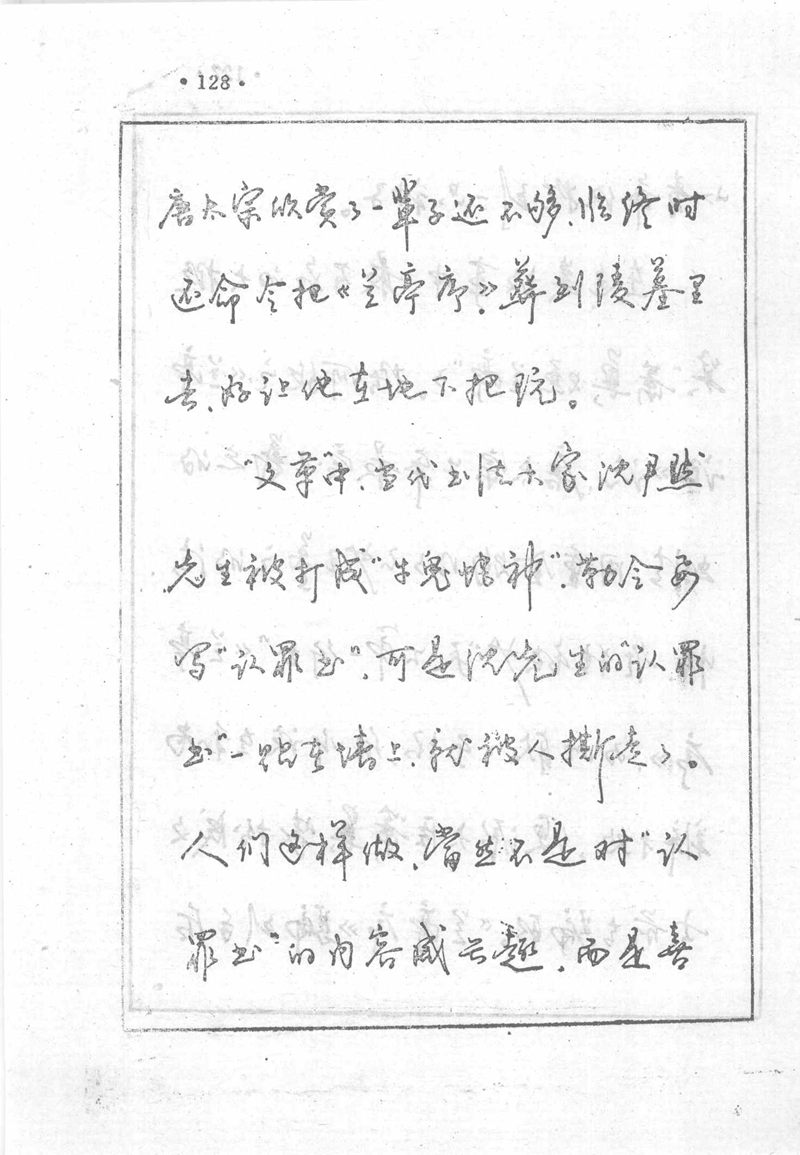 ·128·
唐太宗欣赏了一辈子还不够、临终时
还命令把《兰亭序》葬到陵墓里
去、好让他在地下把玩。
“文革”中、当代书法大家沈尹默
先生被打成“牛鬼蛇神”、勒令要
写“认罪书”、可是沈先生的“认罪
书”一贴在墙上、就被人撕走了。
人们这样做、当然不是对“认
罪书”的内容感兴趣、而是喜